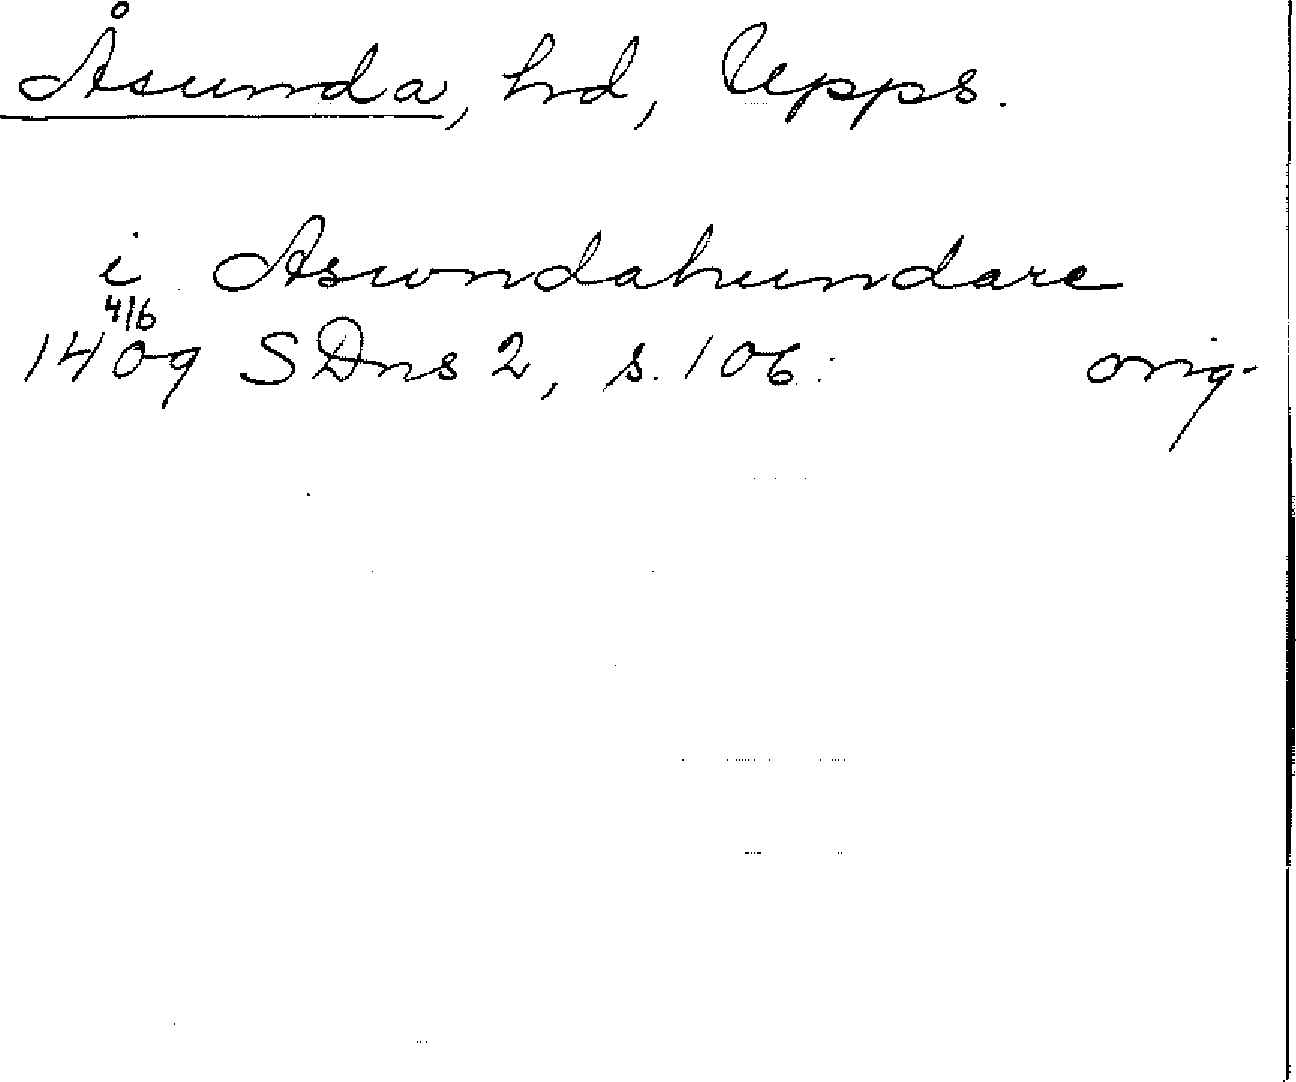 Åsunda, hrd, Upps.
i Aswndahundare
4/6
1409 SDns 2, s. 106. orig.